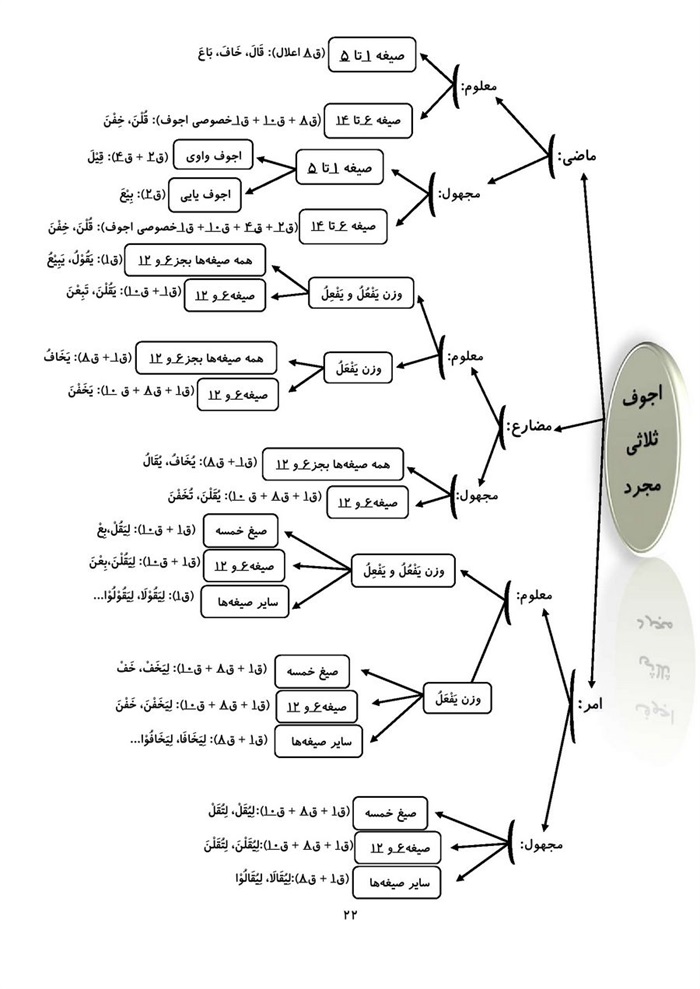 صیغه ۱ تا ۵ (ق۸ اعلال): قَالَ، خَافَ، بَاعَ
معلوم:
صیغه ۶ تا ۱۴ (ق۸ + ق۱۰ + ق۱ خصوصی اجوف): قُلْنَ، خِفْنَ
ماضی:
اجوف واوی (ق۲ + ق۴): قِیْلَ
صیغه ۱ تا ۵
مجهول:
اجوف یایی (ق۲): بِیْعَ
صیغه ۶ تا ۱۴ (ق۲ + ق۴ + ق۱۰ + ق۱ خصوصی اجوف): قُلْنَ، خِفْنَ
همه صیغه‌ها بجز ۶ و ۱۲ (ق۱): یَقُوْلُ، یَبِیْعُ
وزن یَفْعُلُ و یَفْعِلُ
صیغه ۶ و ۱۲ (ق۱ + ق۱۰): یَقُلْنَ، تَبِعْنَ
معلوم:
همه صیغه‌ها بجز ۶ و ۱۲ (ق۱ + ق۸): یَخَافُ
وزن یَفْعَلُ
صیغه ۶ و ۱۲ (ق۱ + ق۸ + ق ۱۰): یَخَفْنَ
اجوف
ثلاثی
مجرد
مضارع:
همه صیغه‌ها بجز ۶ و ۱۲ (ق۱ + ق۸): یُخَافُ، یُقَالُ
مجهول:
صیغه ۶ و ۱۲ (ق۱ + ق۸ + ق ۱۰): یُقَلْنَ، تُخَفْنَ
صیغ خمسه (ق۱ + ق۱۰): لِیَقُلْ،بِعْ
وزن یَفْعُلُ و یَفْعِلُ
صیغه ۶ و ۱۲ (ق۱ + ق۱۰): لِیَقُلْنَ،بِعْنَ
معلوم:
سایر صیغه‌ها (ق۱): لِیَقُوْلَا، لِیَقُوْلُوْا...
صیغ خمسه (ق۱ + ق۸ + ق۱۰): لِیَخَفْ، خَفْ
وزن یَفْعَلُ
صیغه ۶ و ۱۲ (ق۱ + ق۸ + ق۱۰): لِیَخَفْنَ، خَفْنَ
امر:
سایر صیغه‌ها (ق۱ + ق۸): لِیَخَافَا، لِیَخَافُوْا...
صیغ خمسه (ق۱ + ق۸ + ق۱۰):لِیُقَلْ، لِتُقَلْ
مجهول:
صیغه ۶ و ۱۲ (ق۱ + ق۸ + ق۱۰):لِیُقَلْنَ، لِتُقَلْنَ
سایر صیغه‌ها (ق۱ + ق۸):لِیُقَالَا، لِیُقَالُوْا
۲۲